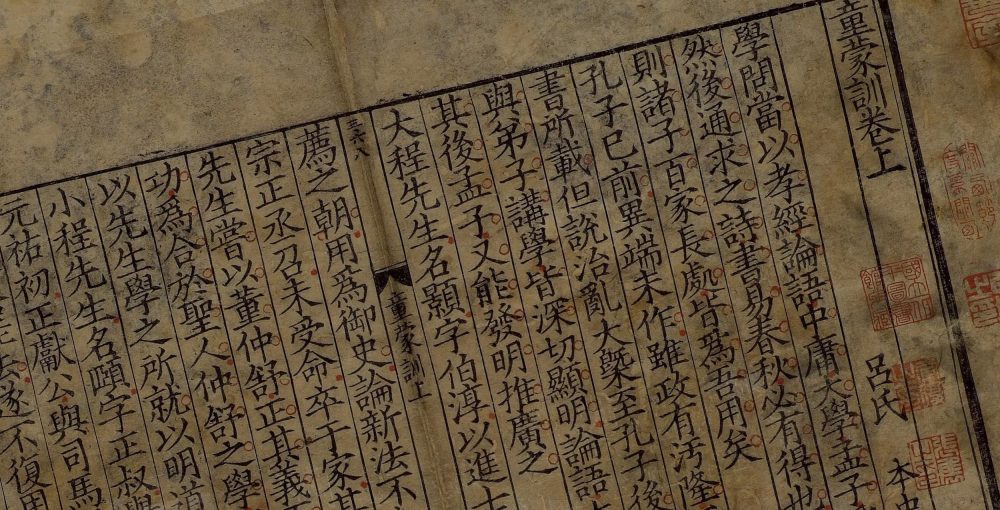 童蒙訓卷上
呂氏 本中
學問當以孝經論語中庸大學孟子
然後通求之詩書易春秋必有得也
則諸子百家長處皆爲吾用矣
孔子已前異端未作雖政有汚隆
書所載但說治亂大槩至孔子後
與弟子講學皆深切顯明論語
其後孟子又能發明推廣之
大程先生名顥字伯淳以進士
三六八
童蒙訓上
薦之朝用爲御史論新法不
宗正丞召未受命卒于家其
先生嘗以董仲舒正其義
功爲合於聖人仲舒之學
以先生學之所就以明道
小程先生名頤字正叔與
元祐初正獻公與司馬
遂不復用